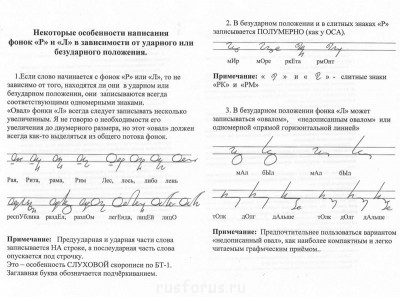 Некоторые особенности написания
фонок «Р» и «Л» в зависимости от ударного или
безударного положения.
1.Если слово начинается с фонок «Р» или «Л», то не
зависимо от того, находятся ли они в ударном или
безударном положении, они записываются всегда
соответствующими одномерными знаками.
«Овал» фонки «Л» всегда следует записывать несколько
увеличенным. Я не говорю о необходимости его
увеличения до двумерного размера, но этот «овал» должен
всегда как-то выделяться из общего потока фонок.
Рая, Рита, рама, Рим Лес, лось, либо лень
респУблика раздЕл, разлОм легЕнда, лицЕЙ лицО
Примечание: Предударная и ударная части слова
записывается НА строке, а послеударная часть слова
опускается под строчку.
Это – особенность СЛУХОВОЙ скорописи по БТ-1.
Заглавная буква обозначается подчёркиванием.
2. В безударном положении и в слитных знаках «Р»
записывается ПОЛУМЕРНО (как у ОСА).
мИр мОре ркЕта рмОнт
Примечание: « » и « » - слитные знаки
«РК» и «РМ»
3. В безударном положении фонка «Л» может
записываться «овалом», «недописанным овалом» или
одномерной прямой горизонтальной линией»
мАл бЫл мАл бЫл
тОлк дОлг дАльше тОлк дОлг дАльше
Примечание: Предпочтительнее пользоваться вариантом
«недописанный овал», как наиболее компактным и легко
читаемым графическим приёмом..